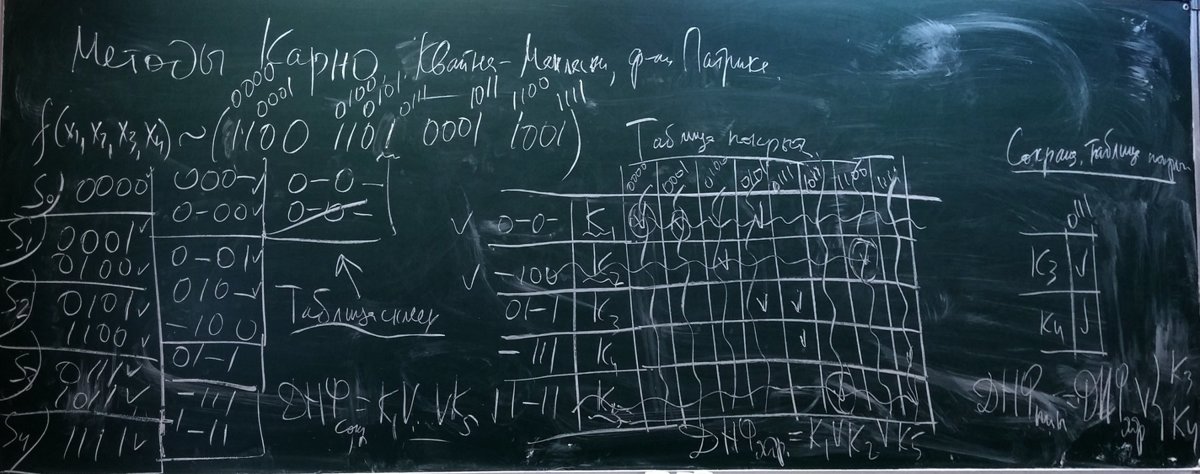 Методы Карно Квайна-Маккласки, ф-ии Патрика.
0000 0001 0100 0101 0111 1011 1100 1111
f(x₁, x₂, x₃, x₄) ~ (1100 1101 0001 1001)
S₀) 0000✓
S₁) 0001✓
0100✓
S₂) 0101✓
1100✓
S₃) 0111✓
1011✓
S₄) 1111✓
000-✓
0-00✓
0-01✓
010-✓
-100
01-1
-111
1-11
0-0-
0-0-
Таблица склеек
ДНФсокр = K₁V...VK₅
Таблица покры.
0000 0001 0100 0101 0111 1011 1100 1111
✓ 0-0- K₁ ✓ ✓ ✓ ✓
✓ -100 K₂ ✓ ✓
01-1 K₃ ✓ ✓
-111 K₄ ✓ ✓
1-11 K₅ ✓
ДНФяд. = K₁VK₂VK₅
Сокращ. Таблица покрыт
0111
K₃ ✓
K₄ ✓
ДНФмин = ДНФяд V { K₃
K₄